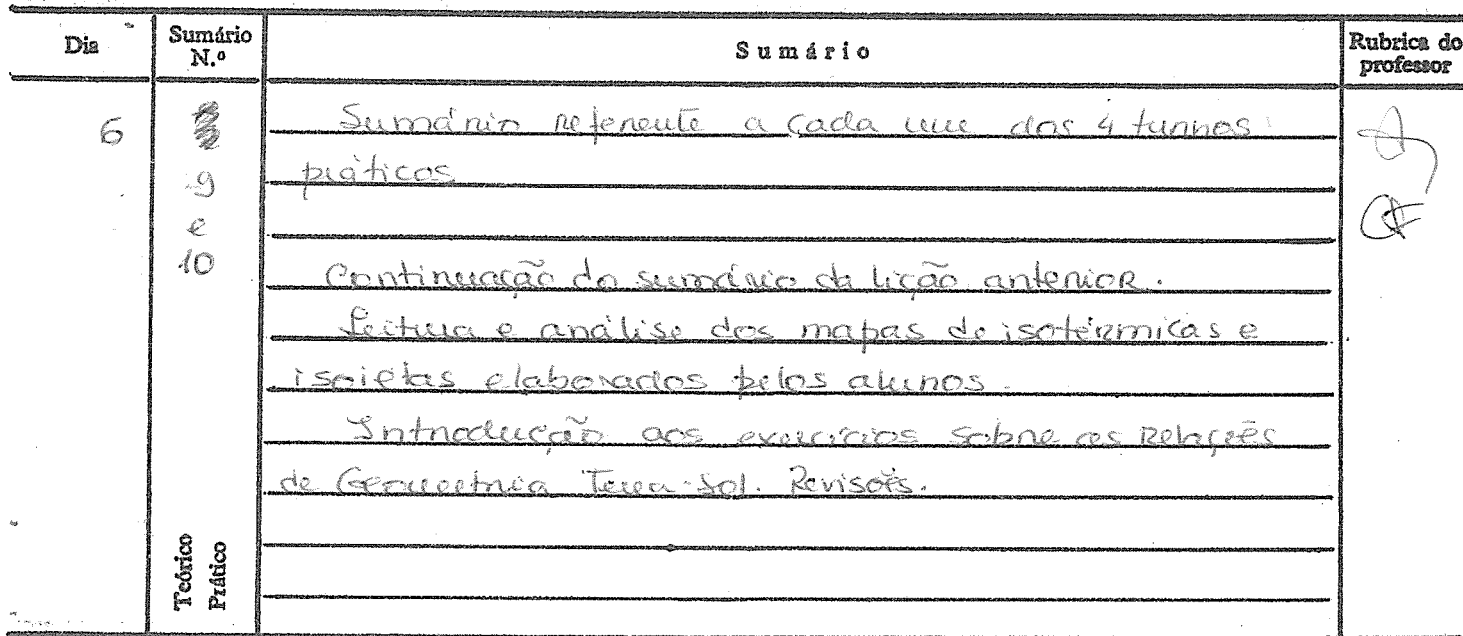 Dia
Sumário N.º
Sumário
Rubrica do professor
6
9
e
10
Sumário referente a cada uma das 4 turmas
práticas
Continuação do sumário da lição anterior.
Leitura e análise dos mapas de isotérmicas e
isoietas elaborados pelos alunos.
Introdução aos exercícios sobre as Relações
de Geometria Terra-Sol. Revisões.
Teórico
Prático